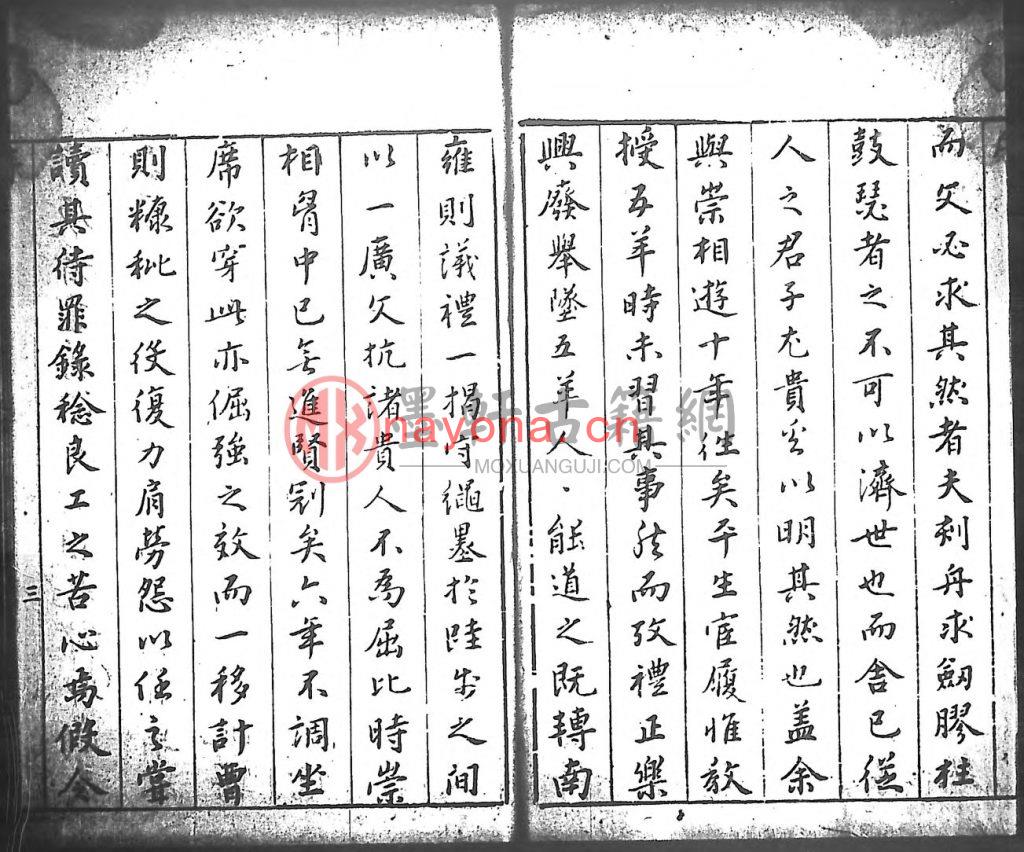 而父必求其然者夫刻舟求劒膠柱
鼓瑟者之不可以濟世也而舍已從
人之君子尤貴乎以明其然也盖余
與崇相遊十年徃矣平生宦履惟教
授五羊時未習其事然而攷禮正樂
興廢舉墜五羊人、能道之既轉南
雍則議禮一揭守繩墨於跬步之間
以一廣父抗諸貴人不為屈比時崇
相胷中已無進賢冠矣六年不調坐
席欲穿此亦倔強之效而一移計曹
則糠秕之役復力肩勞怨以任之嘗
讀其待罪錄稔良工之苦心焉假令
三
墨軒古籍網
nayona.cn
MOXUANGUJI.COM